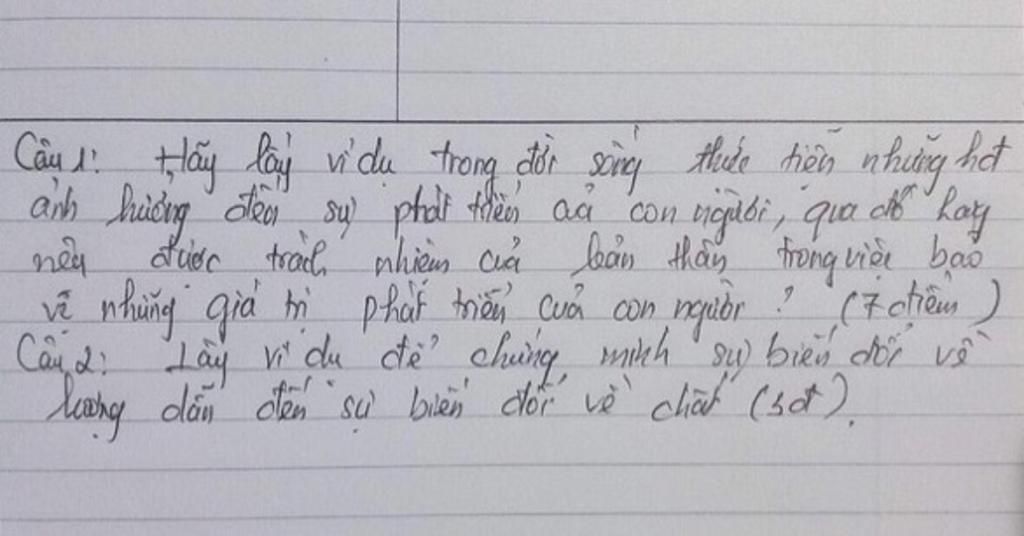 Câu 1: Hãy lấy ví dụ trong đời sống thực tiễn những hđ
ảnh hưởng đến sự phát triển của con người, qua đó hãy
nêu được trách nhiệm của bản thân trong việc bảo
vệ những giá trị phát triển của con người? (7 điểm)
Câu 2: Lấy ví dụ để chứng minh sự biến đổi về
lượng dẫn đến sự biến đổi về chất (3đ).